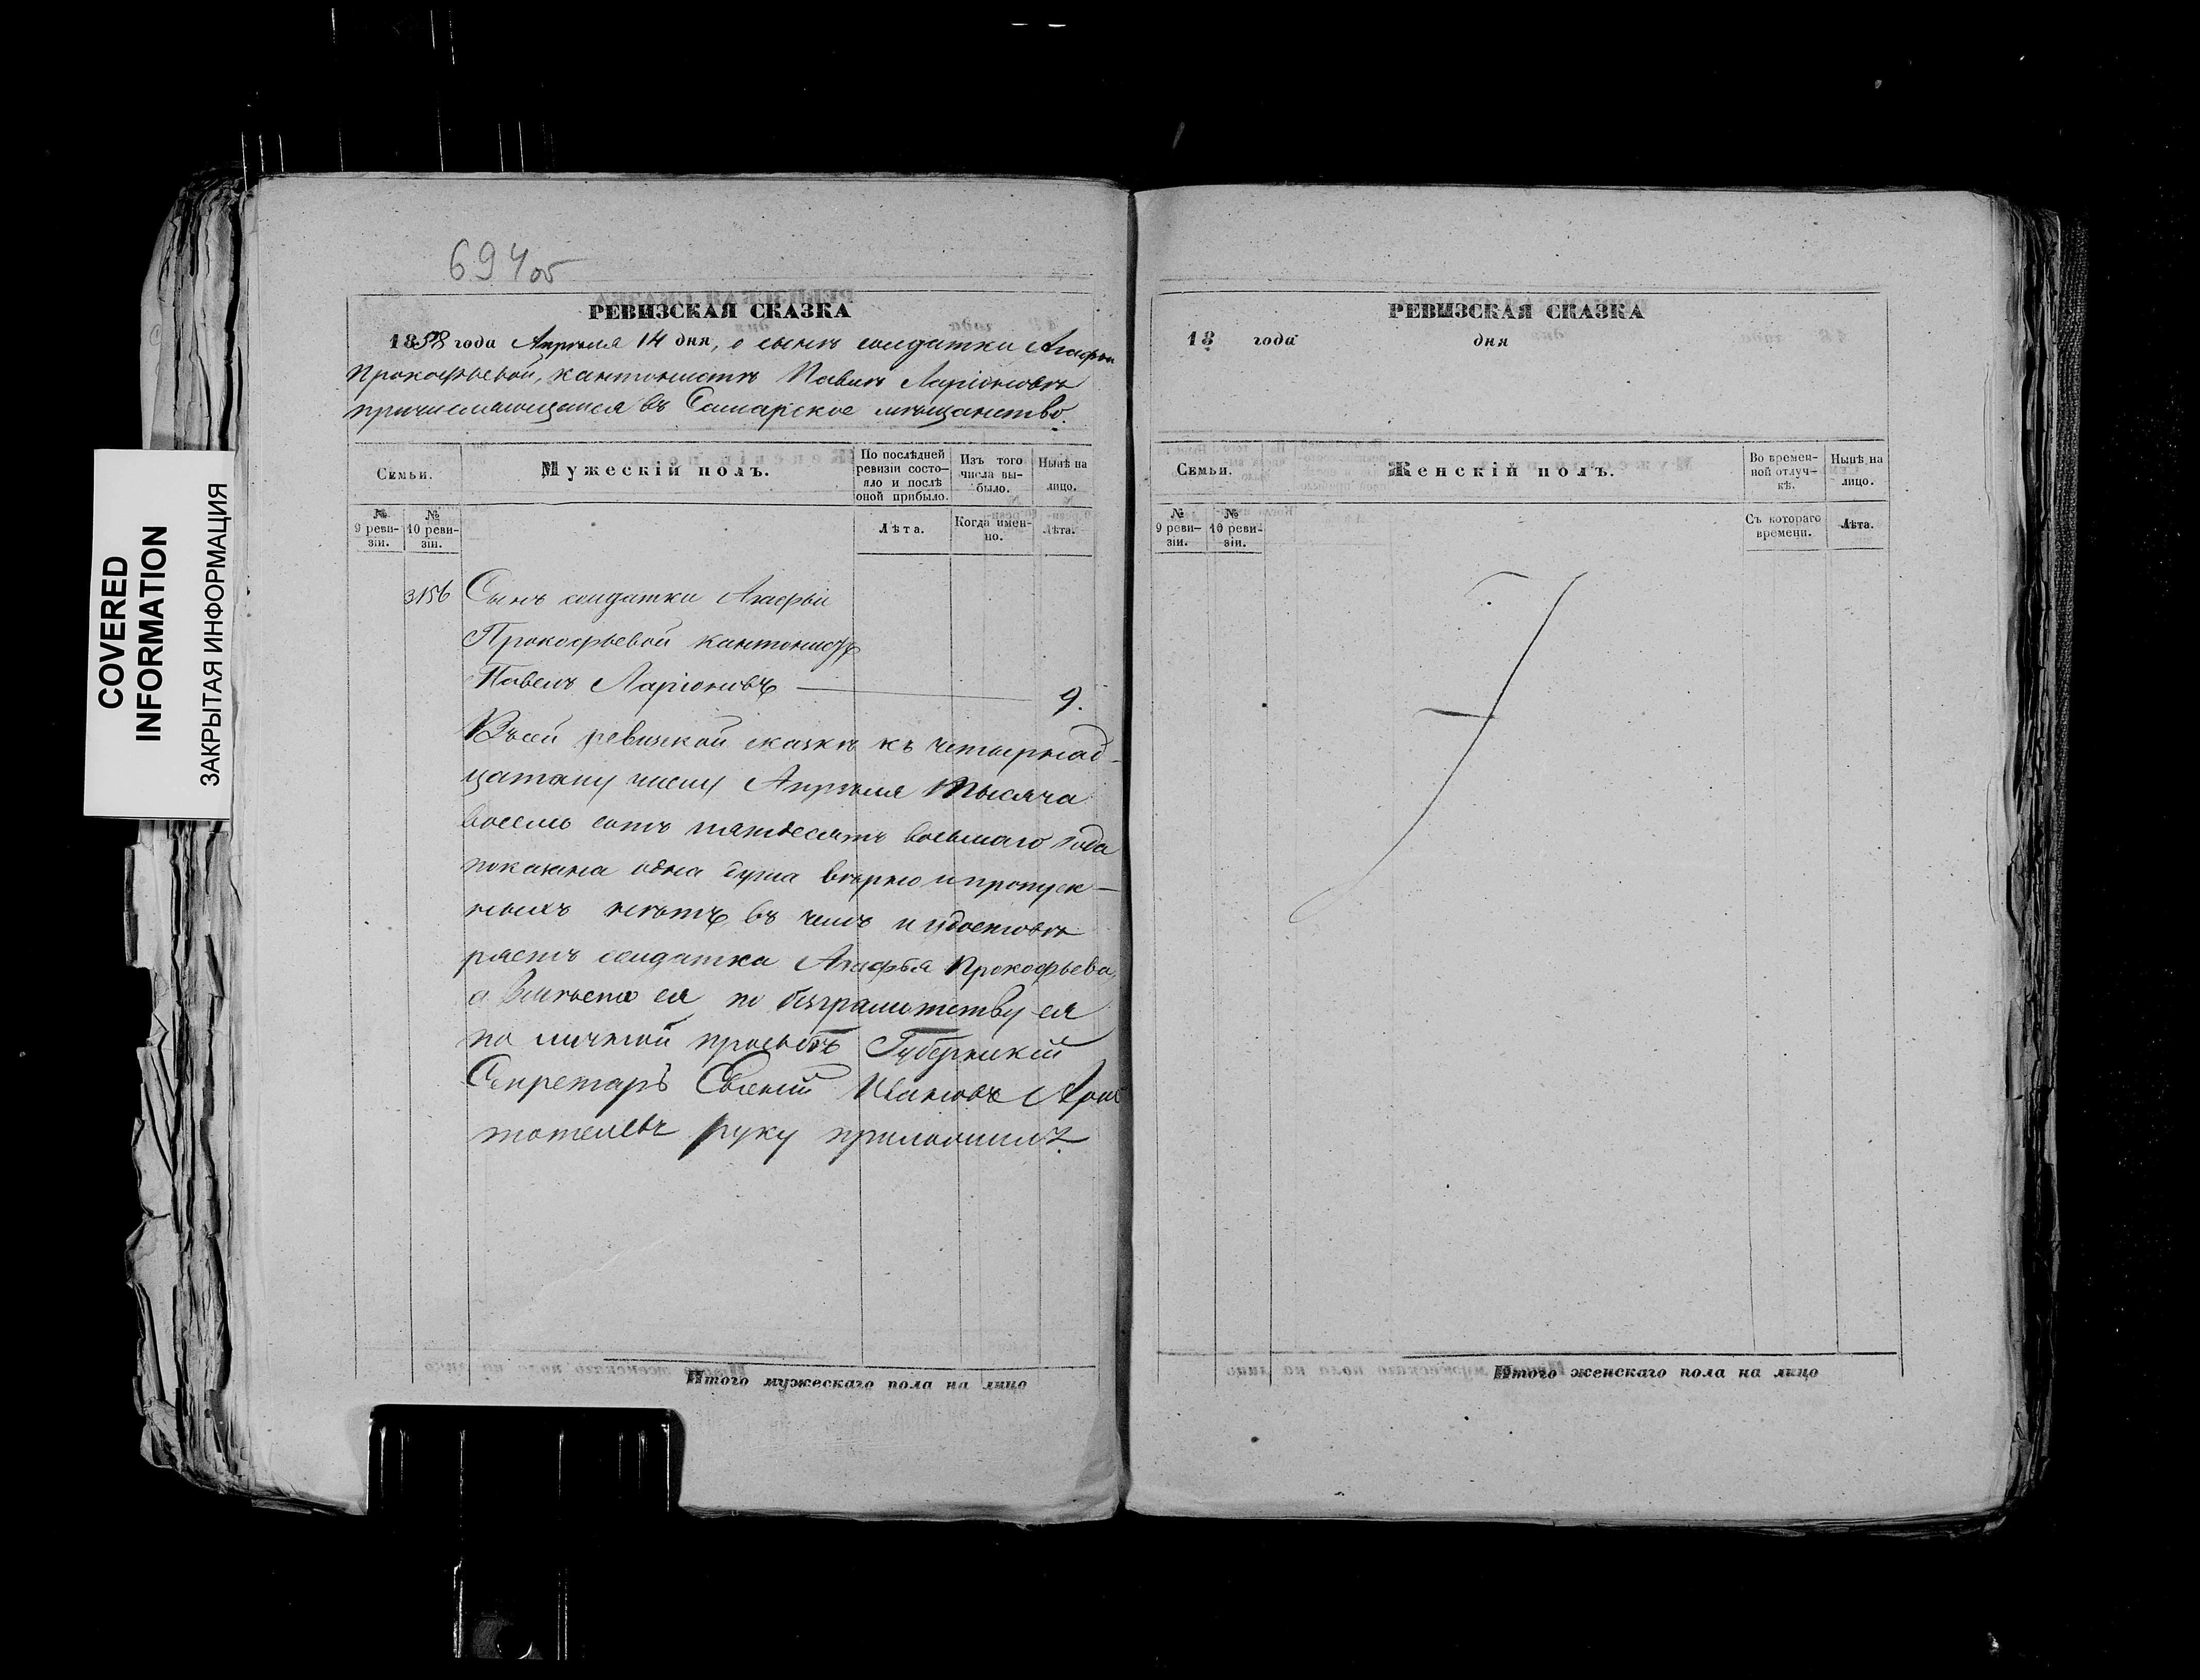 COVERED
INFORMATION
ЗАКРЫТАЯ ИНФОРМАЦИЯ
694об
РЕВИЗСКАЯ СКАЗКА
1858 года Апрѣля 14 дня, о сынѣ солдатки Агафьи
Прокофьевой, кантонистѣ Павлѣ Ларіоновѣ
причисляющемся въ Самарское мѣщанство.
Семьи.
Мужескій полъ.
По послѣдней
ревизіи состо-
яло и послѣ
оной прибыло.
Изъ того
числа вы-
было.
Нынѣ на
лицо.
№
9 реви-
зіи.
№
10 реви-
зіи.
Лѣта.
Когда имен-
но.
Лѣта.
3156 Сынъ солдатки Агафьи
Прокофьевой кантонистъ
Павелъ Ларіоновъ 9.
Въ сей ревизкой сказкѣ къ четырнад-
цатому числу Апрѣля тысяча
восемь сотъ пятдесятъ восьмаго года
показана одна душа вѣрно и пропуск-
ныхъ нѣтъ, въ чемъ и удостовѣ
ряетъ солдатка Агафья Прокофьева,
а вмѣсто ея по безграмотству ея
по личной прозьбѣ Губернскій
Секретарь Ивановъ
руку приложилъ.
Итого мужескаго пола на лицо
РЕВИЗСКАЯ СКАЗКА
18 года дня
Семьи.
Женскій полъ.
Во времен-
ной отлуч-
кѣ.
Нынѣ на
лицо.
№
9 реви-
зіи.
№
10 реви-
зіи.
Съ котораго
времени.
Лѣта.
Итого женскаго пола на лицо